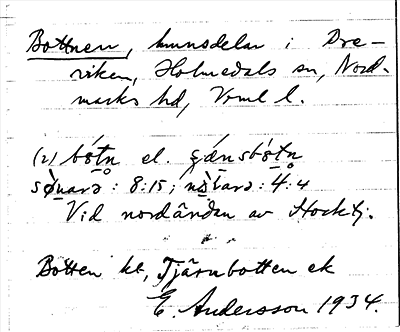 Bottnen, hemmansdelar i Dre-
viken, Holmedals sn, Nord-
marks hd, Vrml l.
(2) bótn el. gænsbótn
sønarə: 8:15; 4:4
Vid nordändan av Stocktj.
Botten kt, Tjärnbotten ek
E Andersson 1934.